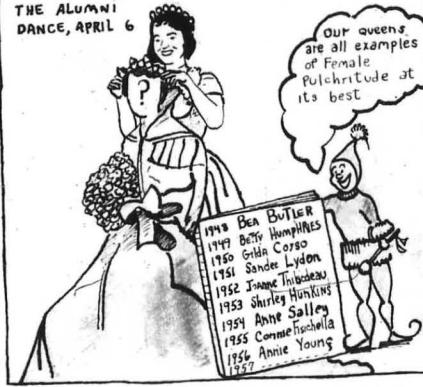 THE ALUMNI
DANCE, APRIL 6
?
Our queens
are all examples
of Female
Pulchritude at
its best
1948 BEA BUTLER
1949 BETTY HUMPHRIES
1950 Gilda Corso
1951 Sandee Lydon
1952 Joanne Thibodeau
1953 Shirley Hunkins
1954 Anne Salley
1955 Connie Fischella
1956 Annie Young
1957